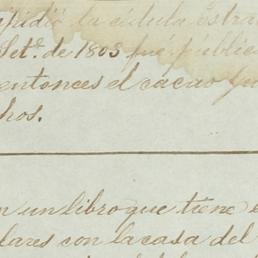 la cédula
Set.e de 1803 fué public
entonces el cacao
hos.
n un libro que tiene e
lares con la casa del